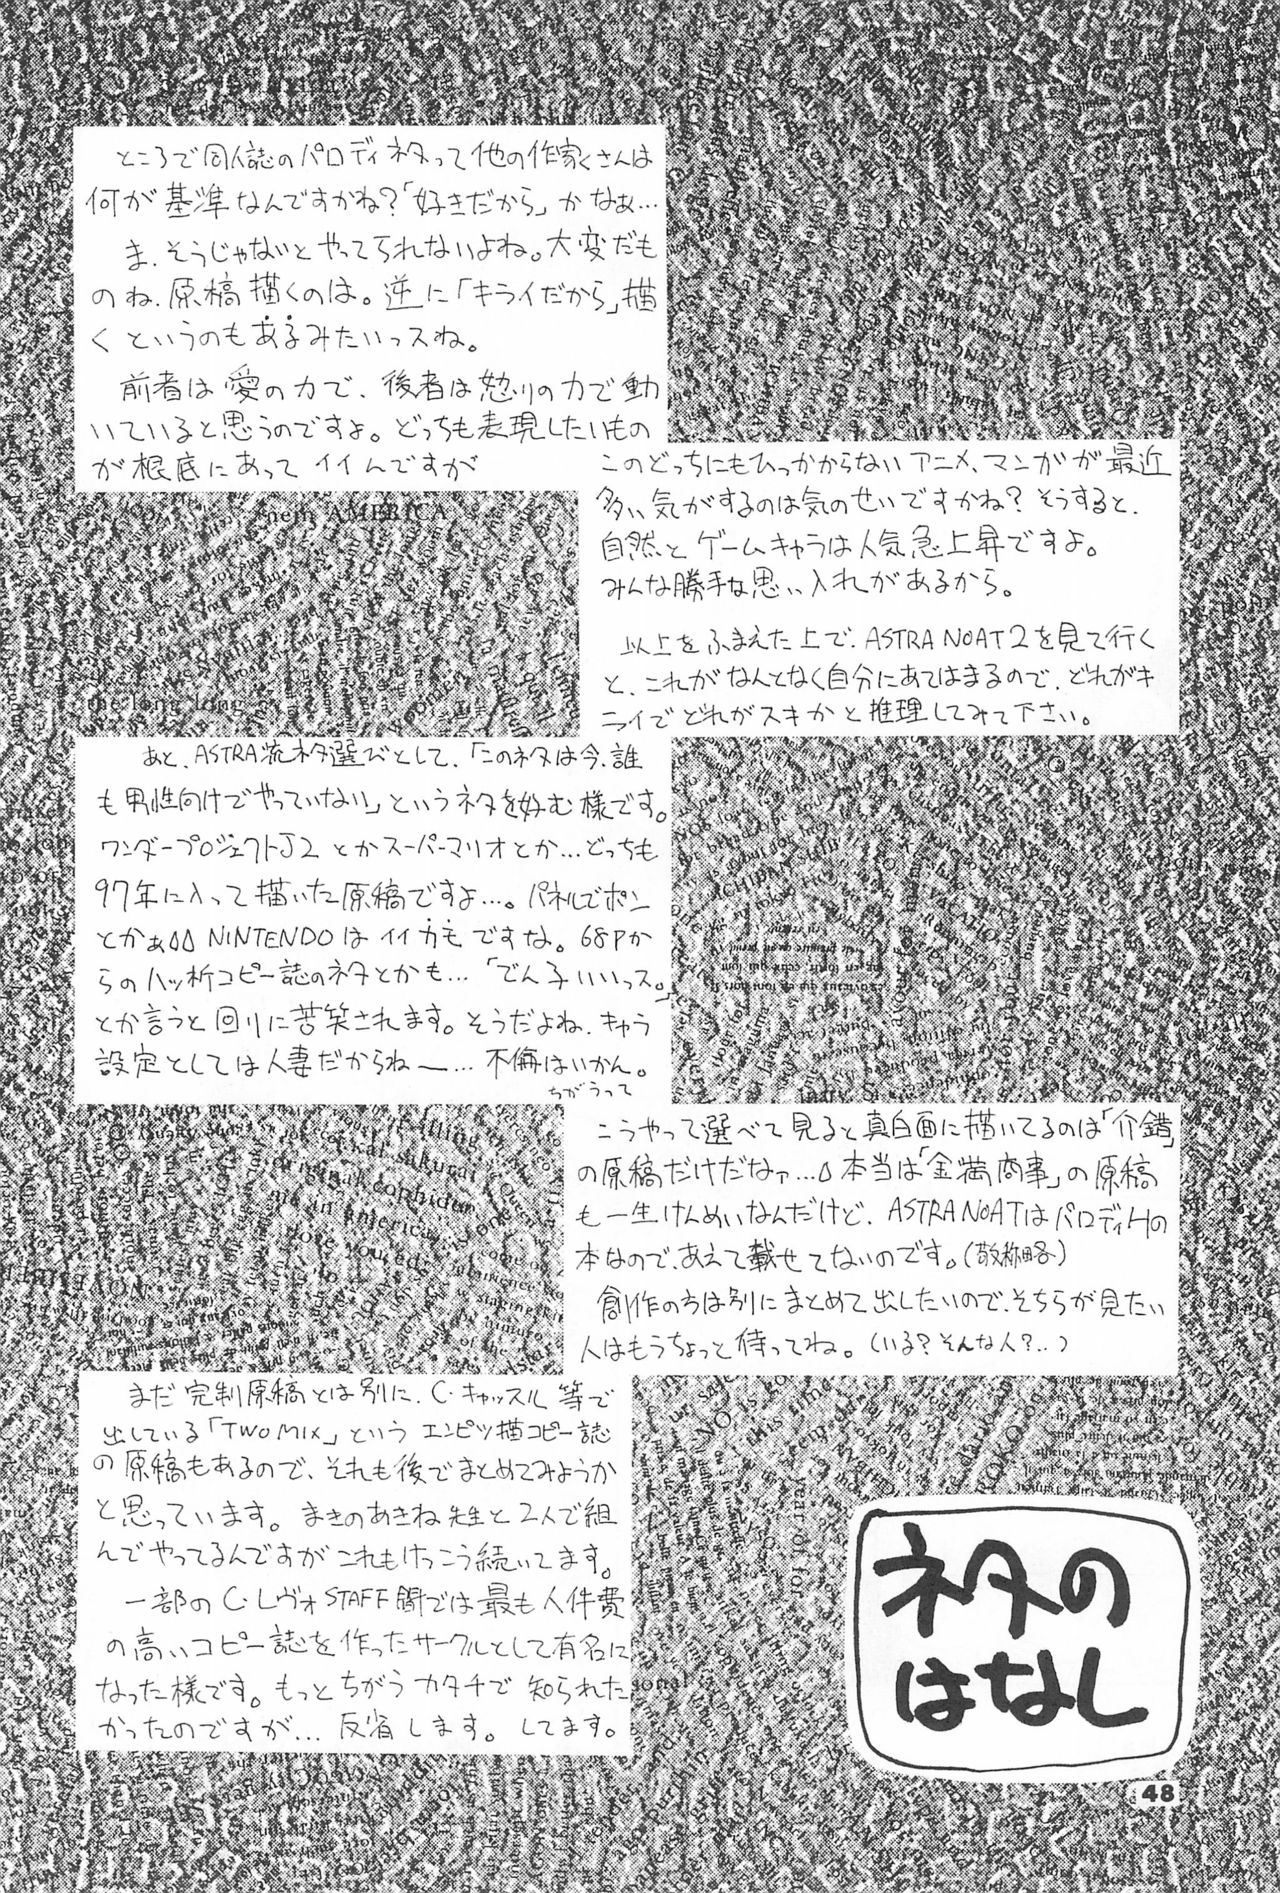 ところで同人誌のパロディネタって他の作家さんは
何が基準なんですかね?「好きだから」かなぁ…
ま、そうじゃないとやってられないよね。大変だも
のね、原稿描くのは。逆に「キライだから」描
くというのもあるみたいっスね。
前者は愛の力で、後者は怒りの力で動
いていると思うのですよ。どっちも表現したいもの
が根底にあってイイんですが
このどっちにもひっかからないアニメ、マンガが最近
多い気がするのは気のせいですかね?そうすると、
自然とゲームキャラは人気急上昇ですよ。
みんな勝手な思い入れがあるから。
以上をふまえた上で、ASTRA NOAT2を見て行く
と、これがなんとなく自分にあてはまるので、どれがキ
ライでどれがスキかと推理してみて下さい。
あと、ASTRA流ネタ選びとして、「このネタは今、誰
も男性向けでやっていない」というネタを好む様です。
ワンダープロジェクトJ2とかスーパーマリオとか…どっちも
97年に入って描いた原稿ですよ…。パネルでポン
とかぁ NINTENDOはイイカモですな。68Pか
らのハッ析コピー誌のネタとかも…「でん子いいっス。」
とか言うと回りに苦笑されます。そうだよね、キャラ
設定としては人妻だからねー…不倫はいかん。
ちがうって
こうやって選べて見ると真白面に描いてるのは「介錯」
の原稿だけだなァ…本当は「金満商事」の原稿
も一生けんめいなんだけど、ASTRA NOATはパロディHの
本なので、あえて載せてないのです。(敬称略)
創作の方は別にまとめて出したいので、そちらが見たい
人はもうちょっと待ってね。(いる?そんな人?..)
まだ完制原稿とは別に、C・キャッスル等で
出している「TWO MIX」というエンピツ描コピー誌
の原稿もあるので、それも後でまとめてみようか
と思っています。まきのあきね先生と2人で組
んでやってるんですがこれもけっこう続いてます。
一部のC・レヴォSTAFF間では最も人件費
の高いコピー誌を作ったサークルとして有名に
なった様です。もっとちがうカタチで知られた
かったのですが…反省します。してます。
ネタの
はなし
48